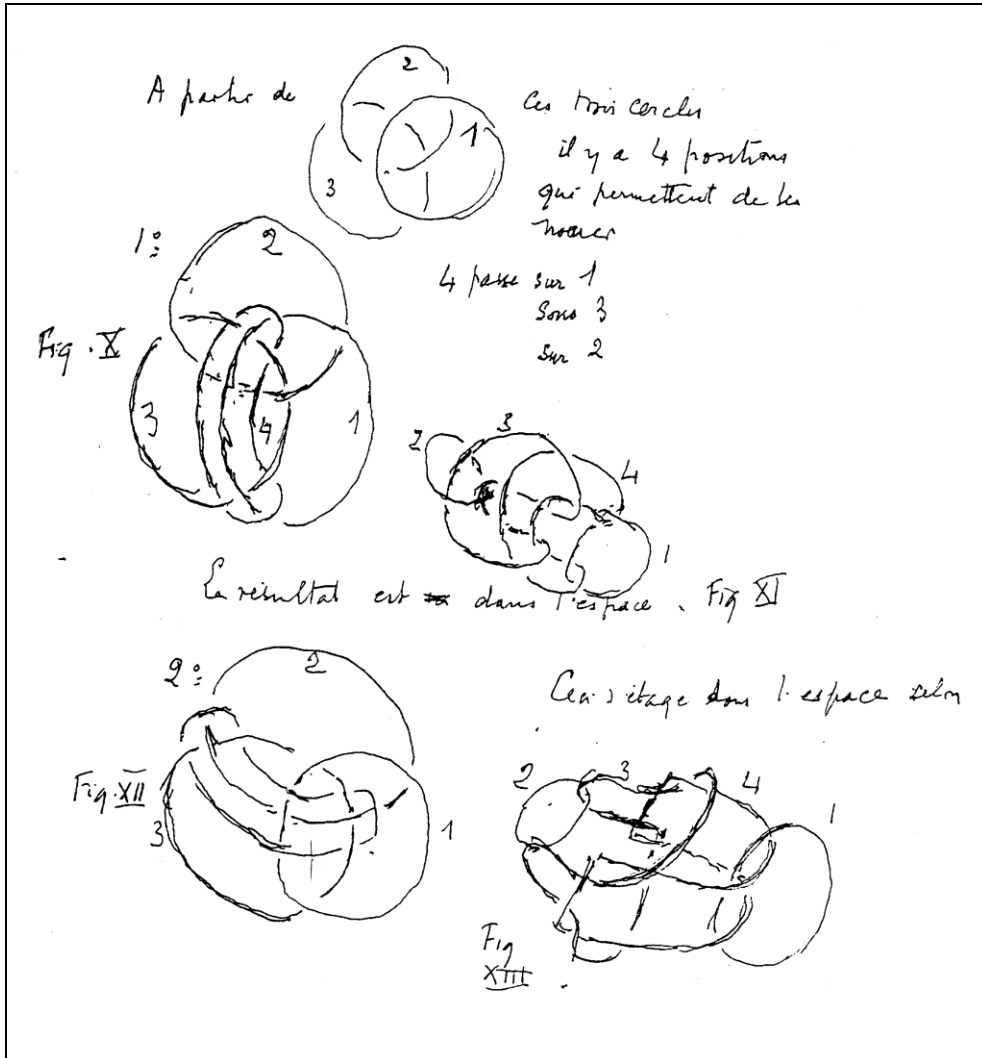 A partir de
2
1
3
Ces trois cercles
il y a 4 positions
qui permettent de les
nouer
1º:
2
4 passe sur 1
sous 3
sur 2
Fig. X
3
4
1
2
3
4
1
Le résultat est dans l'espace. Fig XI
2º:
2
Ceci s'étage dans l'espace selon
Fig. XII
3
1
2
3
4
1
Fig
XIII.